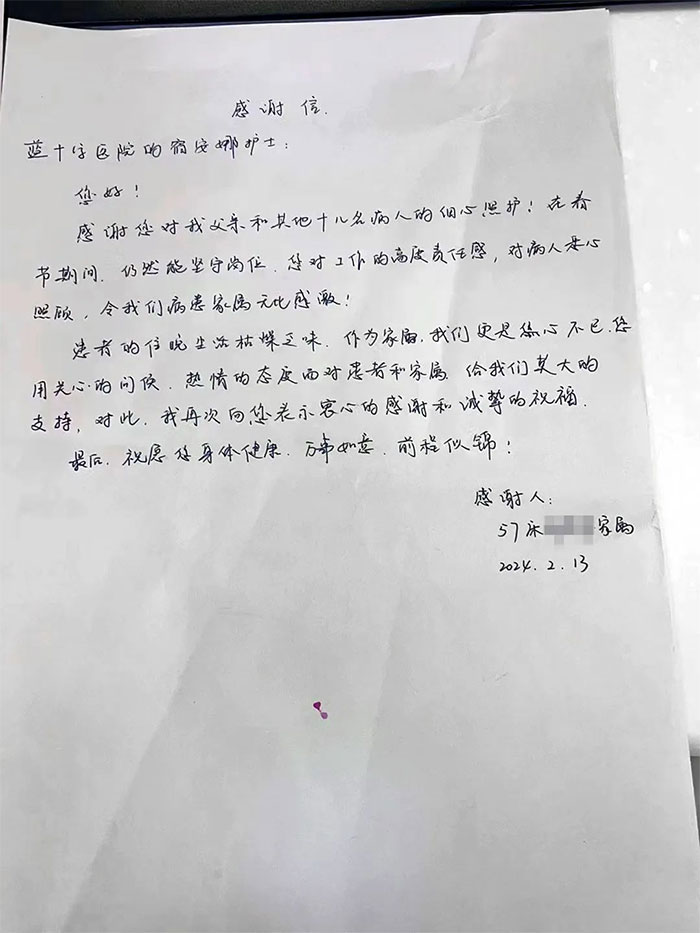 感谢信.
蓝十字医院的宿安娜护士:
您好!
感谢您对我父亲和其他十几名病人的细心照护! 在春
节期间. 仍然能坚守岗位. 您对工作的高度责任感, 对病人悉心
照顾, 令我们病患家属无比感激!
患者的住院生活枯燥乏味. 作为家属, 我们更是忧心不已. 您
用关心的问候. 热情的态度面对患者和家属. 给我们莫大的
支持, 对此. 我再次向您表示衷心的感谢和诚挚的祝福.
最后. 祝愿您身体健康. 万事如意. 前程似锦!
感谢人:
57床 家属
2024. 2. 13